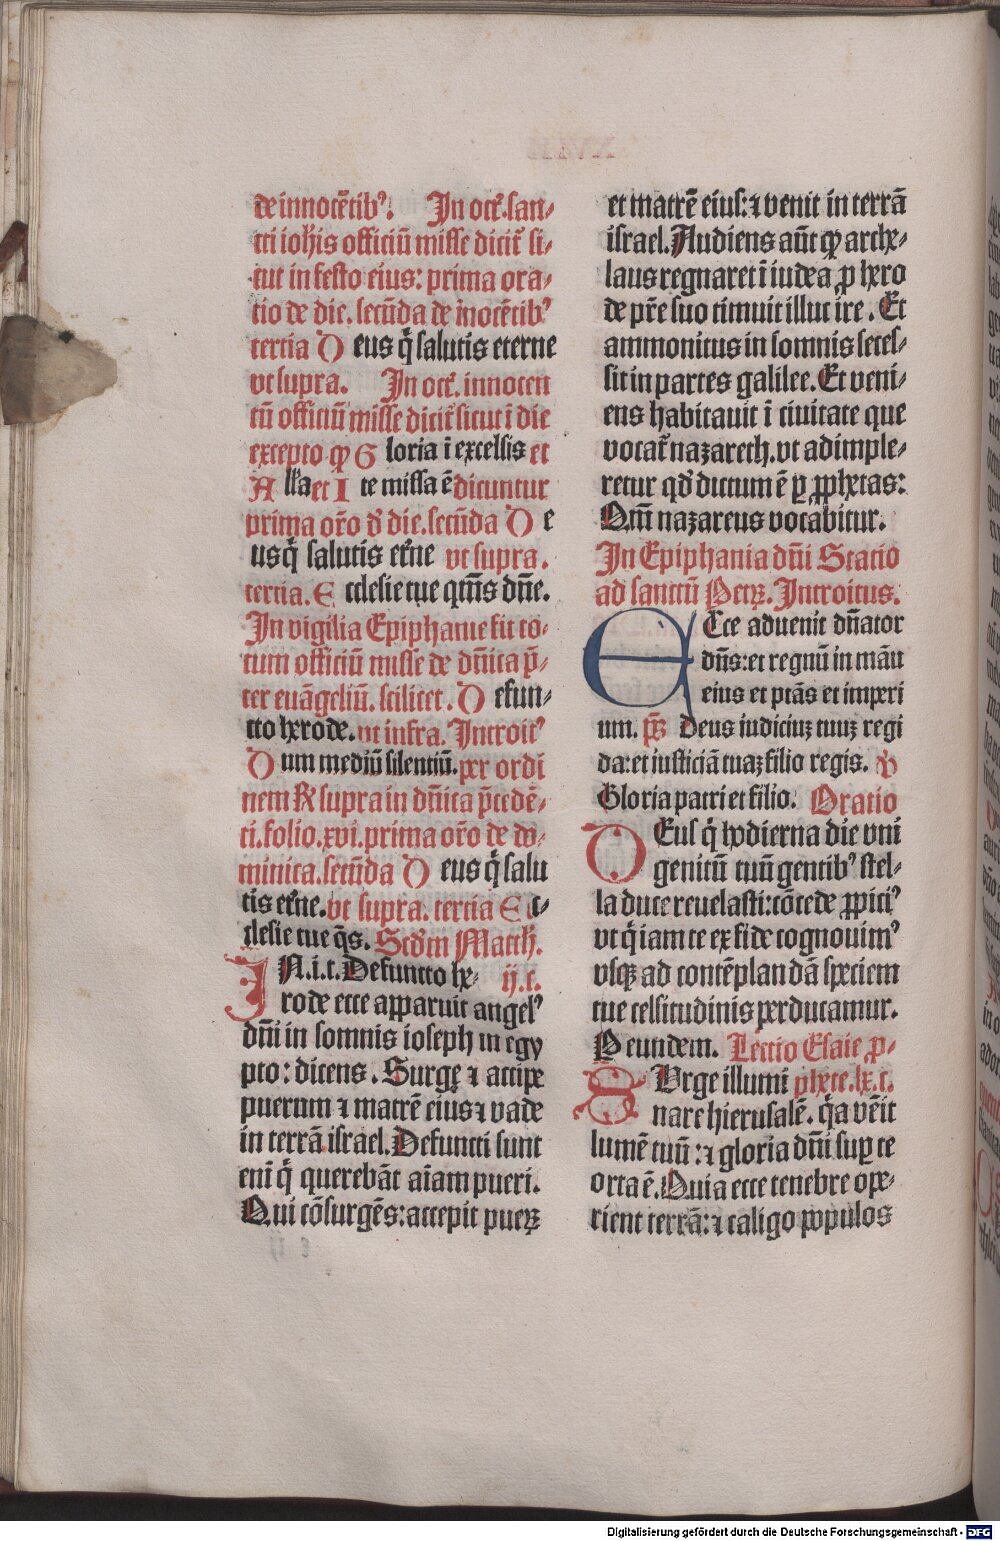 de innocētibꝰ. In oct̄. san⸗
cti ioh̄is officiū misse dicit̄ si⸗
cut in festo eius: prima ora⸗
tio de die. secūda de īnocētibꝰ
tertia Deus q̄ salutis eterne
vt supra. In oct̄. innocen
tū officiū misse dicit̄ sicut ī die
excepto ꝙ Gloria ī excelsis et
All̄a et Ite missa ē dicuntur
prima or̄o d̄ die. secūda De
us q̄ salutis et̄ne vt supra.
tertia. Ecclesie tue q̄m̄s dn̄e.
In vigilia Epiphanie fit to⸗
tum officiū misse de dn̄ica p̄⸗
ter euāgeliū. scilicet. Defun⸗
cto herode. vt infra. Introitꝰ
Dum mediū silentiū. per ordi
nem R supra in dn̄ica p̄cedē⸗
ti. folio. xvi. prima or̄o de do⸗
minica. secūda Deus q̄ salu
tis et̄ne. vt supra. tertia Ec⸗
clesie tue q̄s. Scd̄m Matth.
IN. i. t. Defuncto he⸗ ij. c.
rode ecce apparuit angelꝰ
dn̄i in somnis ioseph in egy
pto: dicens. Surge ⁊ accipe
puerum ⁊ matrē eius ⁊ vade
in terrā israel. Defuncti sunt
eni᷒ q̄ querebāt aīam pueri.
Qui cōsurgēs: accepit puerꝝ
et matrē eius: ⁊ venit in terrā
israel. Audiens aūt ꝙ arche⸗
laus regnaret ī iudea ꝓ hero
de pr̄e suo timuit illuc ire. Et
ammonitus in somnis seces⸗
sit in partes galilee. Et veni⸗
ens habitauit ī ciuitate que
vocat̄ nazareth. vt adimple⸗
retur qd̄ dictum ē ꝑ ꝓphetas:
Qm̄ nazareus vocabitur.
In Epiphania dn̄i Statio
ad sanctū Petrꝝ. Introitus.
ECce aduenit dn̄ator
dn̄s: et regnū in manu
eius et ptās et imperi
um. ps̄ Deus iudiciuꝫ tuuꝫ regi
da: et iusticiā tuaꝫ filio regis. v̄
Gloria patri et filio. Oratio
DEus q̄ hodierna die vni
genitū tuū gentibꝰ stel⸗
la duce reuelasti: cōcede ꝓpiciꝰ
vt q̄ iam te ex fide cognouimꝰ
vsqꝫ ad contēplandā speciem
tue celsitudinis perducamur.
Per eundem. Lectio Esaie ꝓ⸗
SUrge illumi phete. lx. c.
nare hierusalē. q̄a vēit
lumē tuū: ⁊ gloria dn̄i suꝑ te
orta ē. Quia ecce tenebre ope⸗
rient terrā: ⁊ caligo populos
Digitalisierung gefördert durch die Deutsche Forschungsgemeinschaft - DFG